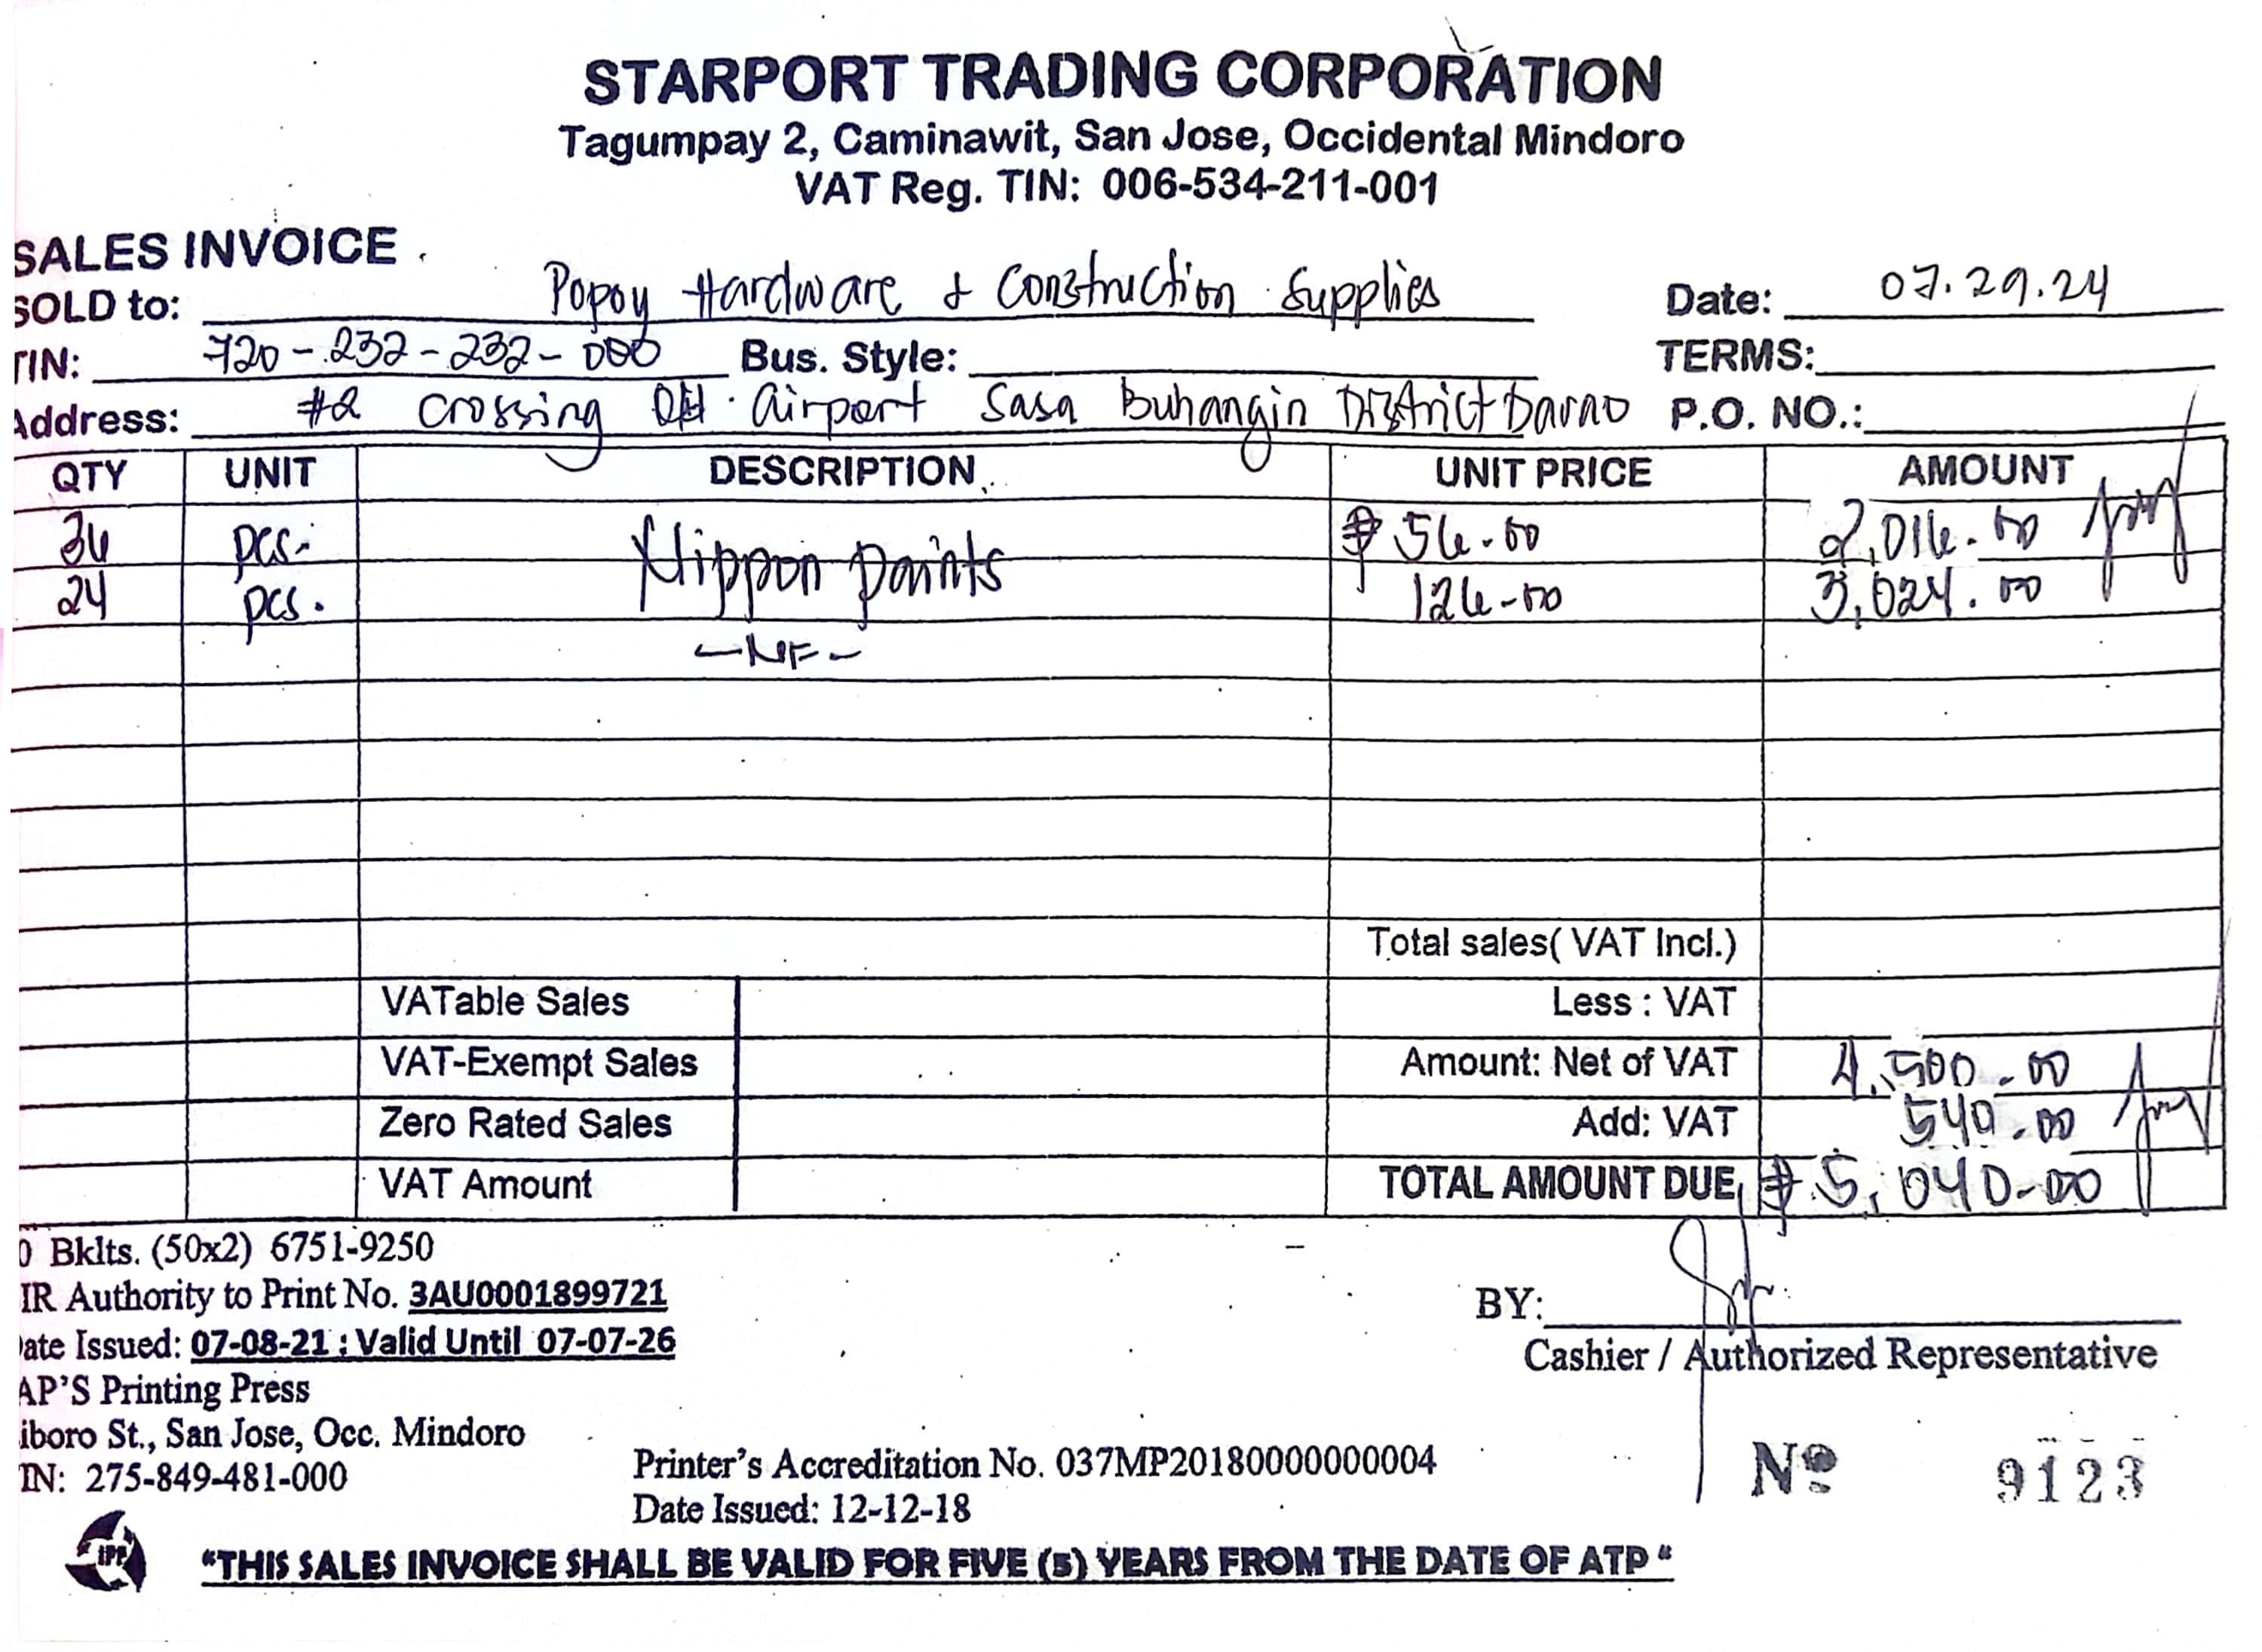 STARPORT TRADING CORPORATION
Tagumpay 2, Caminawit, San Jose, Occidental Mindoro
VAT Reg. TIN: 006-534-211-001
SALES INVOICE
SOLD to: Popoy Hardware & Construction Supplies Date: 07.29.24
TIN: 720-232-232-000 Bus. Style: TERMS:
Address: #2 Crossing Airport Sasa Buhangin District Davao P.O. NO.:
QTY UNIT DESCRIPTION UNIT PRICE AMOUNT
36 pcs. Nippon paints ₱ 56.00 2,016.00
24 pcs. 126.00 3,024.00
-NF-
Total sales( VAT Incl.)
VATable Sales Less : VAT
VAT-Exempt Sales Amount: Net of VAT 4,500.00
Zero Rated Sales Add: VAT 540.00
VAT Amount TOTAL AMOUNT DUE ₱ 5,040.00
0 Bklts. (50x2) 6751-9250
IR Authority to Print No. 3AU0001899721
ate Issued: 07-08-21 ; Valid Until 07-07-26
AP'S Printing Press
iboro St., San Jose, Occ. Mindoro
IN: 275-849-481-000
BY:
Cashier / Authorized Representative
Printer's Accreditation No. 037MP20180000000004
Date Issued: 12-12-18
Nº 9123
IPP
"THIS SALES INVOICE SHALL BE VALID FOR FIVE (5) YEARS FROM THE DATE OF ATP "